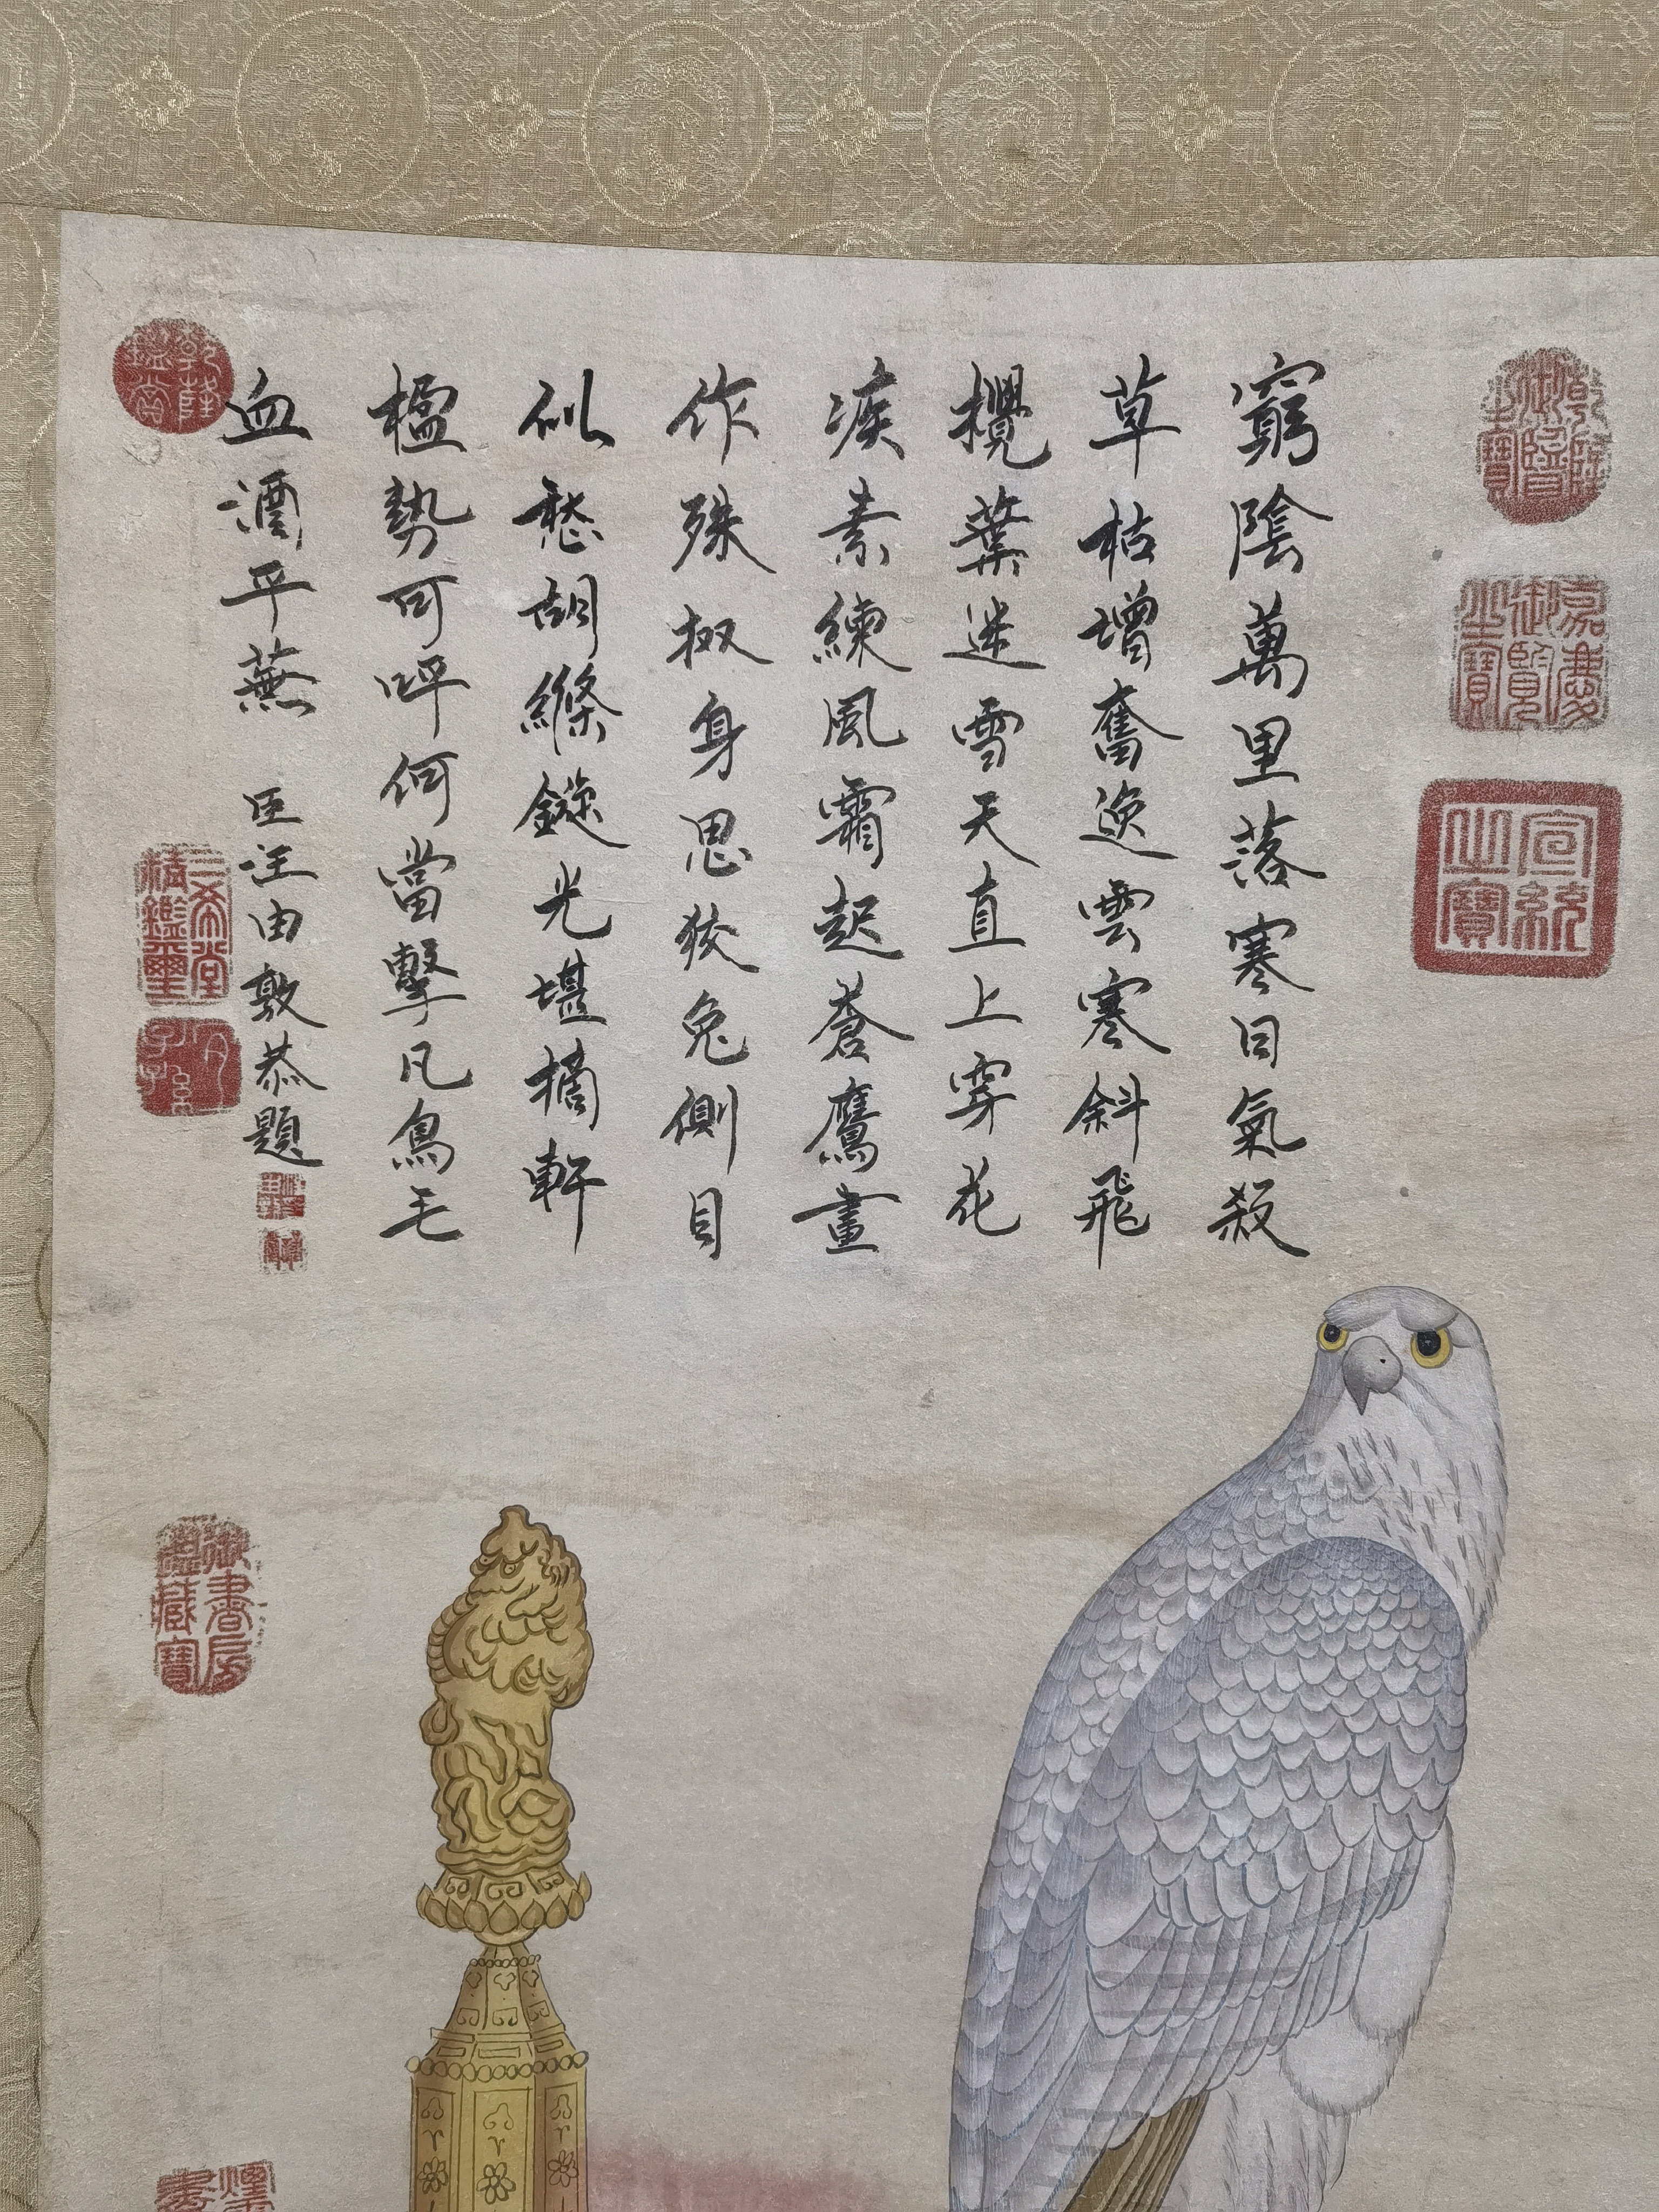 窮陰萬里落寒日氣殺
草枯增奮逸雲寒斜飛
攪葉迷雪天直上穿花
疾素練風霜起蒼鷹畫
作殊㧐身思狡兔側目
似愁胡絛鏇光堪摘軒
楹勢可呼何當擊凡鳥毛
血灑平蕪 臣汪由敦恭題
乾隆御覽之寶
嘉慶御覽之寶
宣統之寶
乾隆鑑賞
三希堂精鑑璽
宜子孫
御書房鑑藏寶